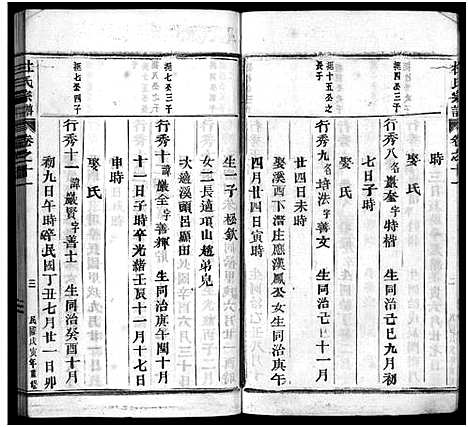 杜氏宗譜
卷之十一
時
娶 氏
振四公三子
行秀八 名巖奎 字特楷 生同治己巳九月初
七日子時
振十五公之長子
行秀九 名培法 字善文 生同治己巳十一月
廿四日未時
娶溪西下潛庄應漢鳳公女生同治庚午
四月廿四日寅時
生一子 極欽
女二長適項山趙弟兒
次適溪頭呂顯田
振八公之次子
行秀十 諱巖全 字善輝 生同治庚午閏十月
十一日子時卒光緒壬辰十一月十七日
申時
娶 氏
振七公三子
行秀十一 諱巖賢 字善士 生同治癸酉十月
初九日午時卒民國丁丑七月廿一日卯
杜氏宗譜
卷之十一
三
民國戊寅年重修